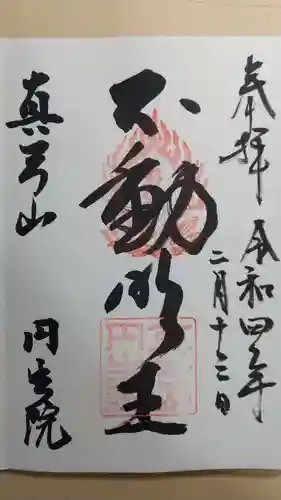 奉拝 令和四年
二月十三日
不動明王
真弓山
円生院